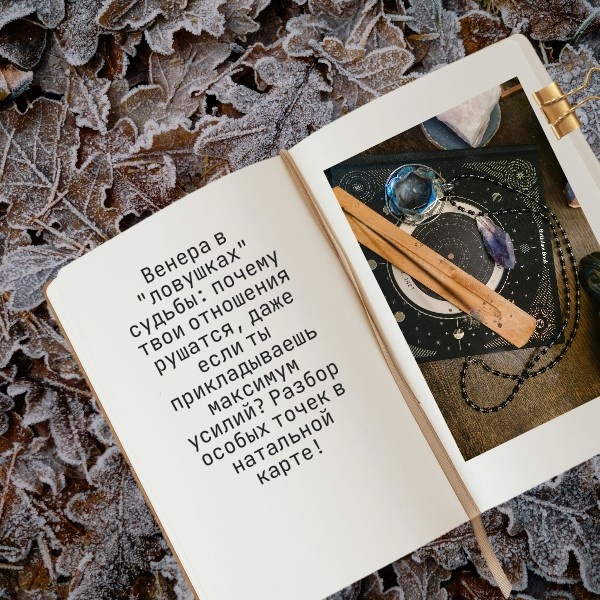 Венера в
"ловушках"
судьбы: почему
твои отношения
рушатся, даже
если ты
прикладываешь
максимум
усилий? Разбор
особых точек в
натальной
карте!